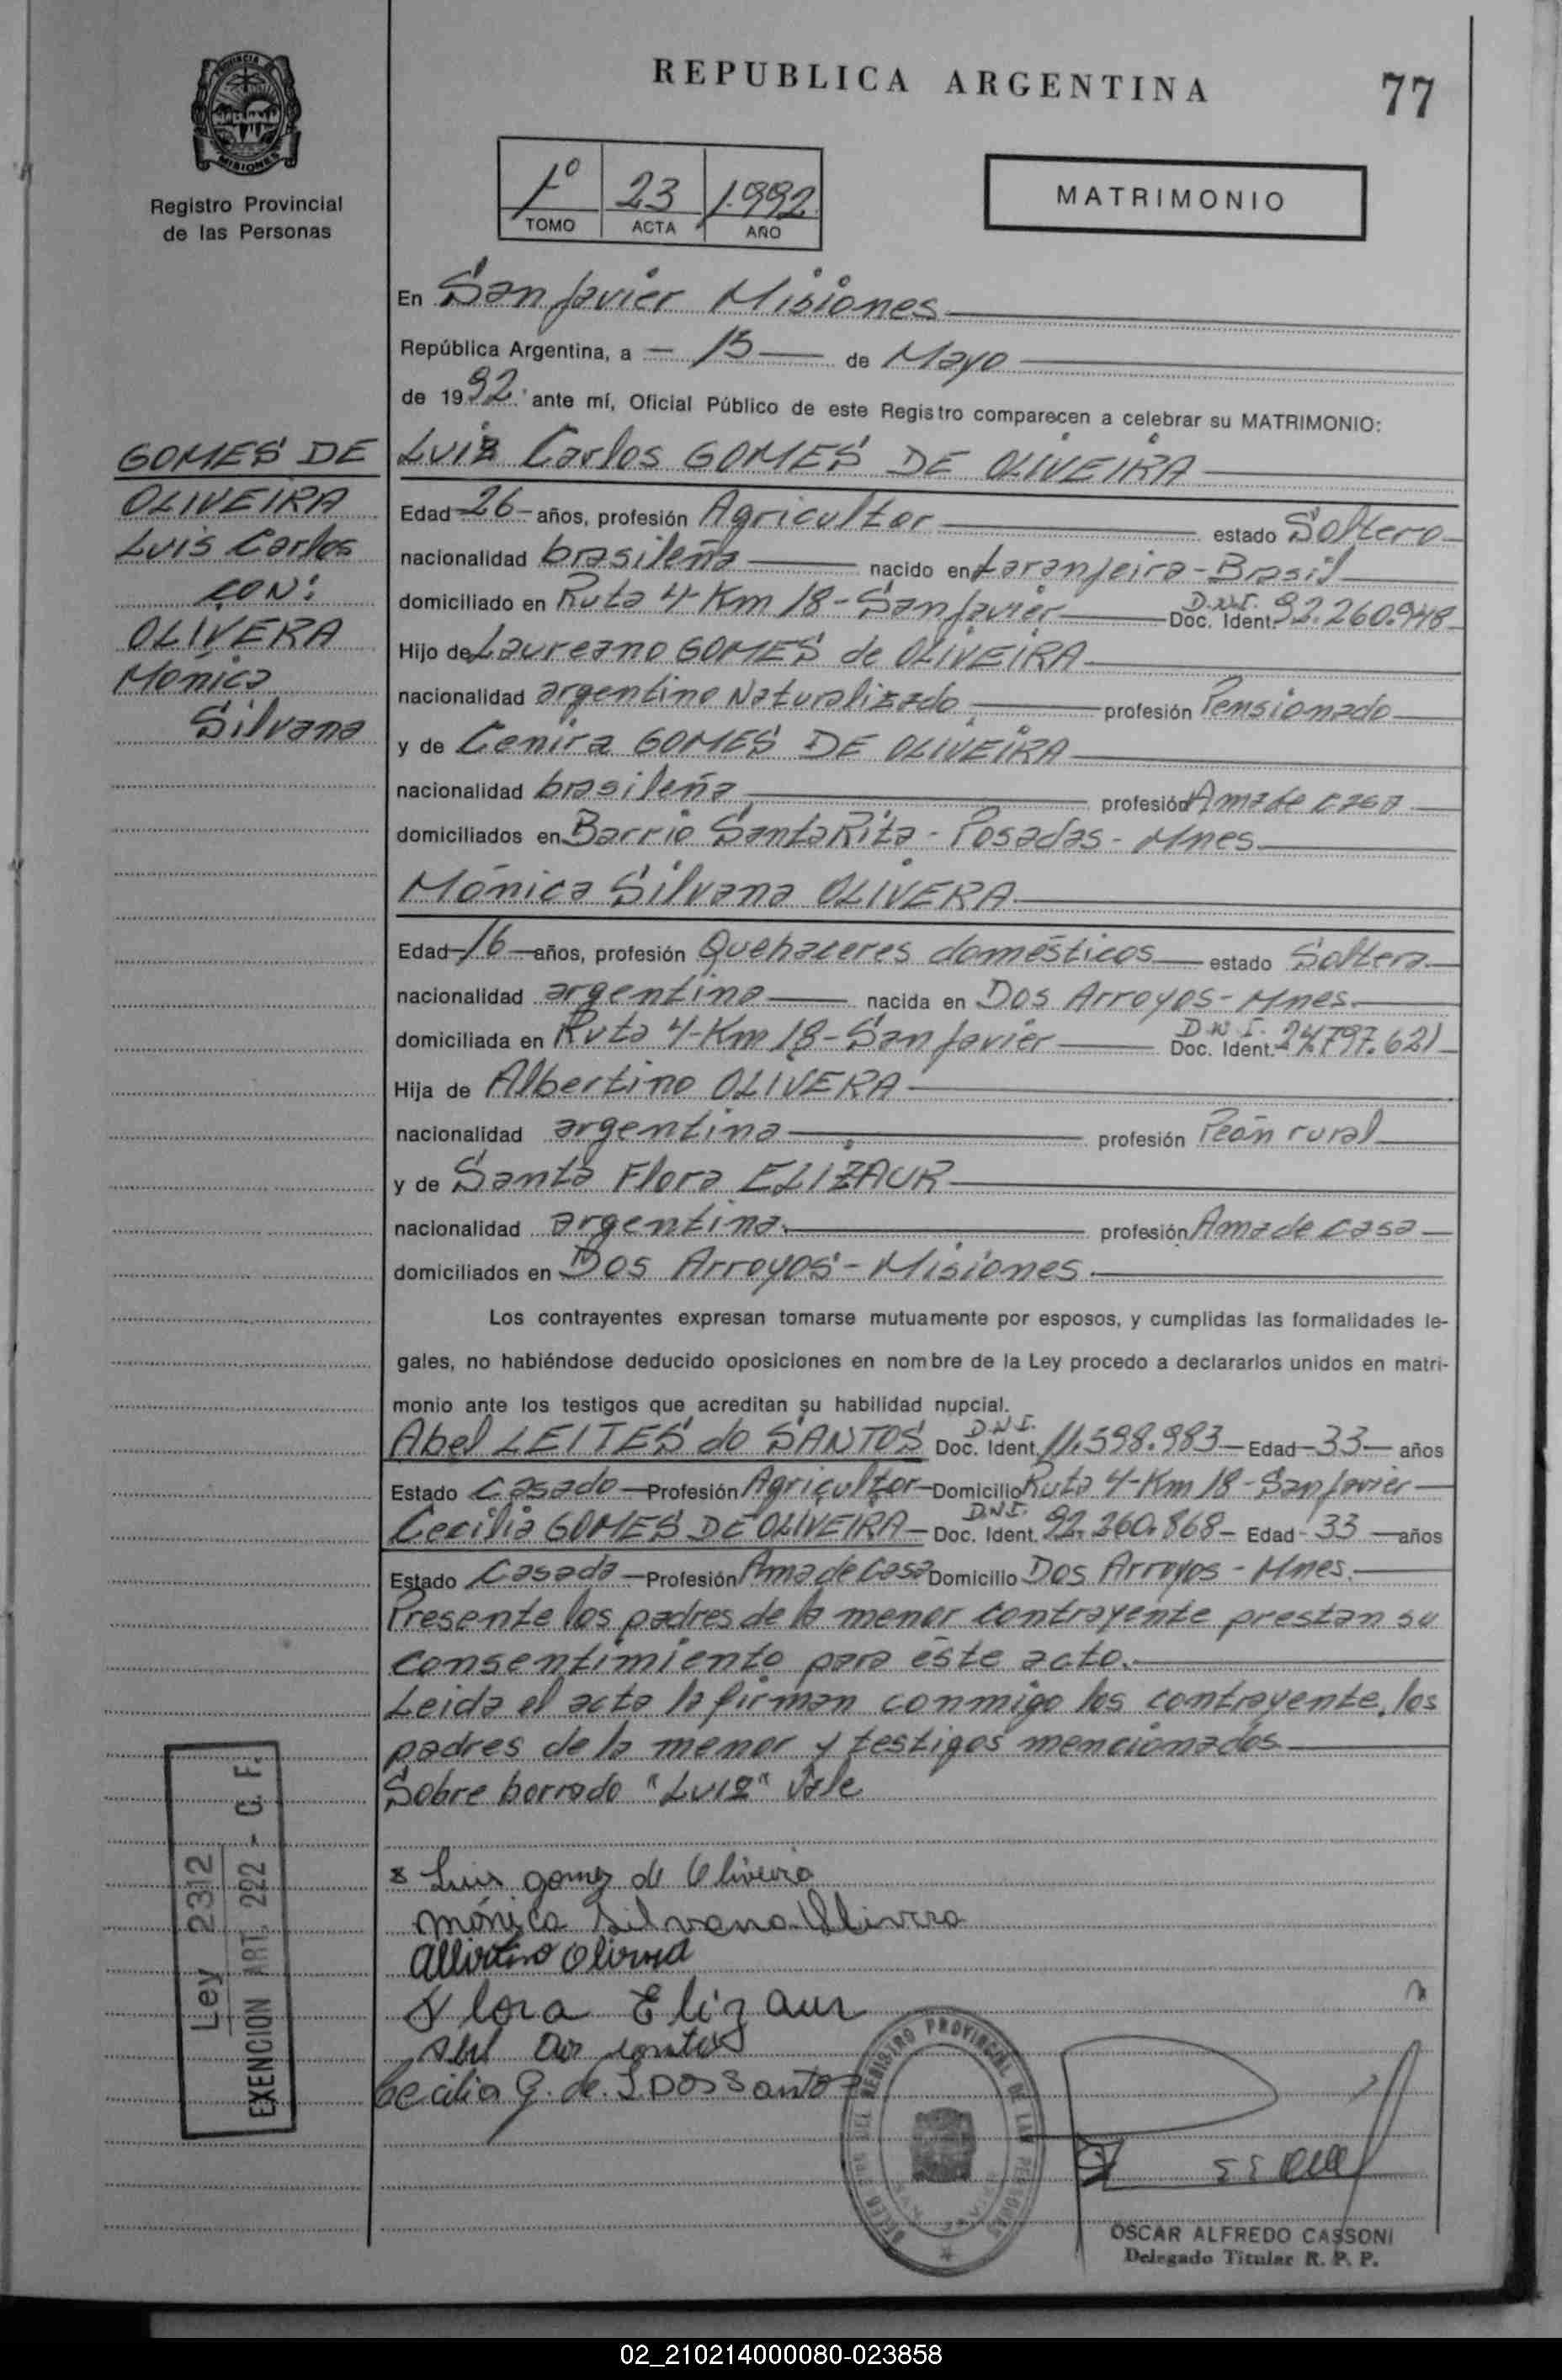 REPUBLICA ARGENTINA
77
PROVINCIA DE
MISIONES
Registro Provincial
de las Personas
1º 23 1.992
TOMO ACTA AÑO
MATRIMONIO
En San Javier Misiones
República Argentina, a - 15 - de Mayo
de 1992 ante mí, Oficial Público de este Registro comparecen a celebrar su MATRIMONIO:
GOMES DE
OLIVEIRA
Luis Carlos
CON:
OLIVERA
Mónica
Silvana
Luiz Carlos GOMES DE OLIVEIRA
Edad -26- años, profesión Agricultor estado Soltero
nacionalidad brasileña nacido en Laranjeira - Brasil
domiciliado en Ruta 4-Km 18-San Javier D.N.I. Doc. Ident. 92.260.948
Hijo de Laureano GOMES de OLIVEIRA
nacionalidad argentino Naturalizado profesión Pensionado
y de Cenira GOMES DE OLIVEIRA
nacionalidad brasileña profesión Ama de casa
domiciliados en Barrio Santa Rita - Posadas - Mnes
Mónica Silvana OLIVERA
Edad -16- años, profesión Quehaceres domésticos estado Soltera
nacionalidad argentina nacida en Dos Arroyos - Mnes.
domiciliada en Ruta 4-Km 18-San Javier D.N.I. Doc. Ident. 24.797.621
Hija de Albertino OLIVERA
nacionalidad argentina profesión Peón rural
y de Santa Flora ELIZAUR
nacionalidad argentina. profesión Ama de casa
domiciliados en Dos Arroyos - Misiones.
Los contrayentes expresan tomarse mutuamente por esposos, y cumplidas las formalidades le-
gales, no habiéndose deducido oposiciones en nombre de la Ley procedo a declararlos unidos en matri-
monio ante los testigos que acreditan su habilidad nupcial.
Abel LEITES do SANTOS D.N.I. Doc. Ident. 11.598.983 - Edad -33- años
Estado Casado - Profesión Agricultor - Domicilio Ruta 4-Km 18-San Javier
Cecilia GOMES DE OLIVEIRA - D.N.I. Doc. Ident. 92.260.868 - Edad -33- años
Estado Casada - Profesión Ama de Casa Domicilio Dos Arroyos - Mnes.
Presente los padres de la menor contrayente prestan su
consentimiento para éste acto.
Leida el acta la firman conmigo los contrayente, los
padres de la menor y testigos mencionados
Sobre borrado "Luiz" Vale
Ley 2312
EXENCION ART. 222 - C. F.
x Luis gomez de Oliveira
mónica silvana Olivera
Albertino Olivera
Flora Elizaur
Abel dos santos
Cecilia G. de L Dos Santos
REGISTRO PROVINCIAL DE LAS PERSONAS
OSCAR ALFREDO CASSONI
Delegado Titular R. P. P.
02_210214000080-023858